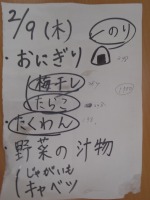 2/9(木)
のり
・おにぎり
梅干し
たらこ
・たくわん
・野菜の汁物
じゃがいも
キャベツ